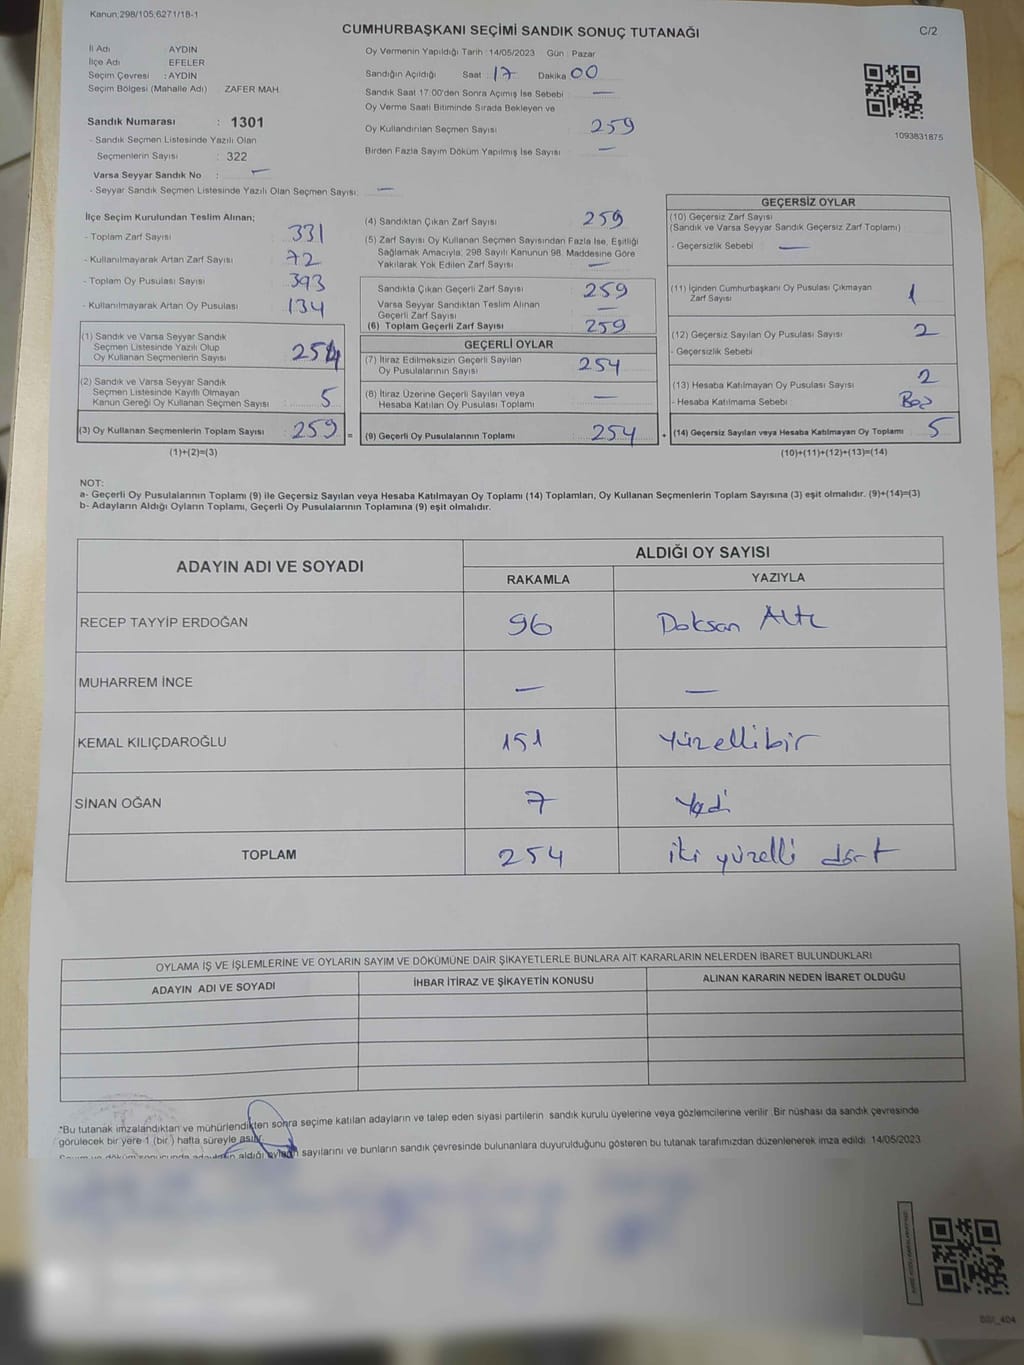 Kanun;298/105;6271/18-1
CUMHURBAŞKANI SEÇİMİ SANDIK SONUÇ TUTANAĞI
C/2
İl Adı : AYDIN
İlçe Adı : EFELER
Seçim Çevresi : AYDIN
Seçim Bölgesi (Mahalle Adı) : ZAFER MAH.
Oy Vermenin Yapıldığı Tarih : 14/05/2023 Gün : Pazar
Sandığın Açıldığı Saat : 17 Dakika : 00
Sandık Saat 17:00'den Sonra Açımış İse Sebebi : —
Oy Verme Saati Bitiminde Sırada Bekleyen ve
Oy Kullandırılan Seçmen Sayısı : 259
Birden Fazla Sayım Döküm Yapılmış İse Sayısı : —
1093831875
Sandık Numarası : 1301
- Sandık Seçmen Listesinde Yazılı Olan
Seçmenlerin Sayısı : 322
Varsa Seyyar Sandık No : —
- Seyyar Sandık Seçmen Listesinde Yazılı Olan Seçmen Sayısı: —
İlçe Seçim Kurulundan Teslim Alınan;
- Toplam Zarf Sayısı : 331
- Kullanılmayarak Artan Zarf Sayısı : 72
- Toplam Oy Pusulası Sayısı : 393
- Kullanılmayarak Artan Oy Pusulası : 134
(1) Sandık ve Varsa Seyyar Sandık
Seçmen Listesinde Yazılı Olup
Oy Kullanan Seçmenlerin Sayısı : 254
(2) Sandık ve Varsa Seyyar Sandık
Seçmen Listesinde Kayıtlı Olmayan
Kanun Gereği Oy Kullanan Seçmen Sayısı : 5
(3) Oy Kullanan Seçmenlerin Toplam Sayısı : 259 =
(1)+(2)=(3)
(4) Sandıktan Çıkan Zarf Sayısı : 259
(5) Zarf Sayısı Oy Kullanan Seçmen Sayısından Fazla İse, Eşitliği
Sağlamak Amacıyla, 298 Sayılı Kanunun 98. Maddesine Göre
Yakılarak Yok Edilen Zarf Sayısı : —
Sandıkta Çıkan Geçerli Zarf Sayısı : 259
Varsa Seyyar Sandıktan Teslim Alınan
Geçerli Zarf Sayısı : —
(6) Toplam Geçerli Zarf Sayısı : 259
GEÇERLİ OYLAR
(7) İtiraz Edilmeksizin Geçerli Sayılan
Oy Pusulalarının Sayısı : 254
(8) İtiraz Üzerine Geçerli Sayılan veya
Hesaba Katılan Oy Pusulası Toplamı : —
(9) Geçerli Oy Pusulalarının Toplamı : 254 +
GEÇERSİZ OYLAR
(10) Geçersiz Zarf Sayısı
(Sandık ve Varsa Seyyar Sandık Geçersiz Zarf Toplamı)
- Geçersizlik Sebebi : —
(11) İçinden Cumhurbaşkanı Oy Pusulası Çıkmayan
Zarf Sayısı : 1
(12) Geçersiz Sayılan Oy Pusulası Sayısı : 2
- Geçersizlik Sebebi :
(13) Hesaba Katılmayan Oy Pusulası Sayısı : 2
- Hesaba Katılmama Sebebi : Boş
(14) Geçersiz Sayılan veya Hesaba Katılmayan Oy Toplamı : 5
(10)+(11)+(12)+(13)=(14)
NOT:
a- Geçerli Oy Pusulalarının Toplamı (9) ile Geçersiz Sayılan veya Hesaba Katılmayan Oy Toplamı (14) Toplamları, Oy Kullanan Seçmenlerin Toplam Sayısına (3) eşit olmalıdır. (9)+(14)=(3)
b- Adayların Aldığı Oyların Toplamı, Geçerli Oy Pusulalarının Toplamına (9) eşit olmalıdır.
ADAYIN ADI VE SOYADI
ALDIĞI OY SAYISI
RAKAMLA YAZIYLA
RECEP TAYYİP ERDOĞAN 96 Doksan Altı
MUHARREM İNCE — —
KEMAL KILIÇDAROĞLU 151 Yüzellibir
SİNAN OĞAN 7 Yedi
TOPLAM 254 iki yüzelli dört
OYLAMA İŞ VE İŞLEMLERİNE VE OYLARIN SAYIM VE DÖKÜMÜNE DAİR ŞİKAYETLERLE BUNLARA AİT KARARLARIN NELERDEN İBARET BULUNDUKLARI
ADAYIN ADI VE SOYADI İHBAR İTİRAZ VE ŞİKAYETİN KONUSU ALINAN KARARIN NEDEN İBARET OLDUĞU
*Bu tutanak imzalandıktan ve mühürlendikten sonra seçime katılan adayların ve talep eden siyasi partilerin sandık kurulu üyelerine veya gözlemcilerine verilir .Bir nüshası da sandık çevresinde
görülecek bir yere 1 (bir ) hafta süreyle asılır.
aldığı oyların sayılarını ve bunların sandık çevresinde bulunanlara duyurulduğunu gösteren bu tutanak tarafımızdan düzenlenerek imza edildi. 14/05/2023